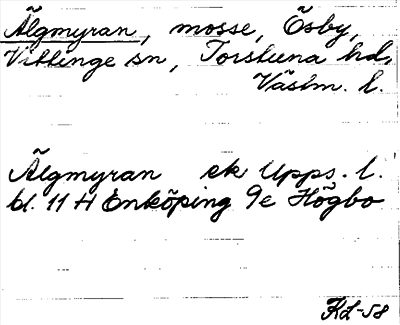 Älgmyran, mosse, Ösby,
Vittinge sn, Torstuna hd,
Västm. l.
Älgmyran ek Upps. l.
bl. 11 H Enköping 9e Högbo
RL-58